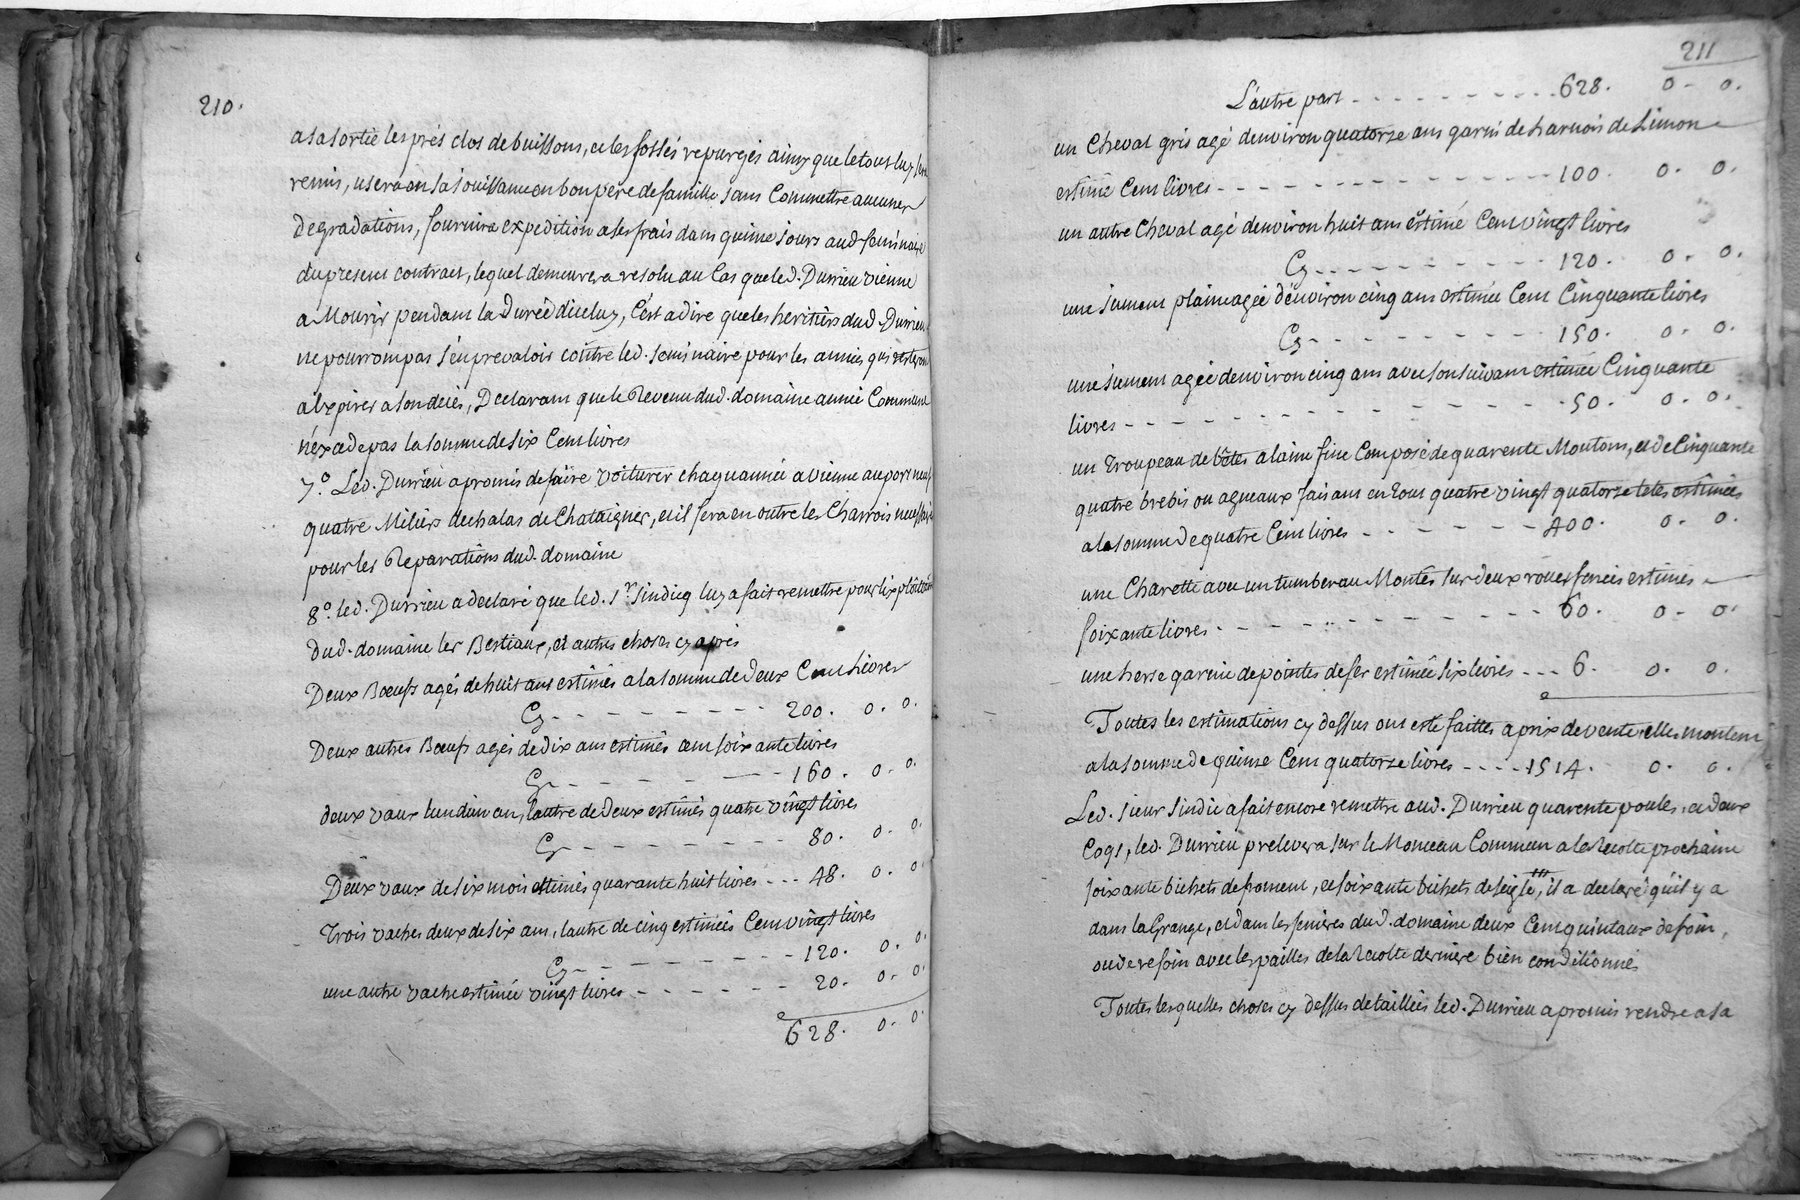 210.
a sa sortie les prés clos de buissons, et les fossés repurgés ainsy que le tout luy sera
remis, usera en sa jouissance en bon père de famille sans Commettre aucunes
degradations, fournira expedition a ses frais dans quinze jours aud. seminaire
du present contract, lequel demeurera resolu au Cas que led. Durrieu vienne
a Mourir pendant la Durée d'iceluy, C'est a dire que les heritiers dud. Durrieu
ne pourront pas s'en prevaloir contre led. seminaire pour les années qui resteront
a Expirer a son decès, Declarant que le Revenu dud. domaine année Commune
n'éxcede pas la somme de six Cent livres
7.º Led. Durrieu a promis de faire voiturer chaqu'année a vienne au port neuf
quatre Miliers dechalas de Chataigner, et il fera en outre les Charrois necessaires
pour les Reparations dud. domaine
8.º led. Durrieu a declaré que led. Sr. sindicq luy a fait remettre pour l'exploitation
dud. domaine les Bestiaux, et autres choses cy après
Deux Bœufs agés de huit ans estimés a la somme de deux Cent livres
Cy - - - - - - - - - 200. 0. 0.
Deux autres Bœufs agés de dix ans estimés cent soixante livres
Cy - - - - - - - - 160. 0. 0.
deux vaux l'un d'un an, l'autre de deux estimés quatre vingt livres
Cy - - - - - - - - 80. 0. 0.
Deux vaux de six mois estimés quarante huit livres - - - 48. 0. 0.
Trois vaches deux de six ans, l'autre de cinq estimées Cent vingt livres
Cy - - - - - - - - - 120. 0. 0.
une autre vache estimée vingt livres - - - - - - - 20. 0. 0.
628. 0. 0.
211
L'autre part - - - - - - - - - - - 628. 0. 0.
un Cheval gris agé denviron quatorze ans garni de harnois de Limon
estimé Cent livres - - - - - - - - - - - - - - - 100. 0. 0.
un autre Cheval agé denviron huit ans estimé Cent vingt livres
Cy - - - - - - - - - 120. 0. 0.
une jument plaine agée d'environ cinq ans estimée Cent Cinquante livres
Cy - - - - - - - - 150. 0. 0.
une jument agée denviron cinq ans avec son suivant estimée Cinquante
livres - - - - - - - - - - - - - - - 50. 0. 0.
un Troupeau de bêtes a laine fine Composé de quarente Moutons, et de Cinquante
quatre brebis ou agneaux faisant en tout quatre vingt quatorze tetes estimées
a la somme de quatre Cent livres - - - - - - - 400. 0. 0.
une Charette avec un tumberau Montés sur deux roues ferrées estimés
soixante livres - - - - - - - - - - - - - - 60. 0. 0.
une herse garnie de pointes de fer estimée six livres - - - 6. 0. 0.
Toutes les estimations cy dessus ont esté faittes a prix de vente elles montent
a la somme de quinze Cent quatorze livres - - - - 1514. 0. 0.
Led. sieur Sindic a fait encore remettre aud. Durrieu quarente poules, et deux
Coqs, led. Durrieu prelevera sur le Monceau Commun a la Recolte prochaine
soixante bichets de froment, et soixante bichets de seigle, il a declaré qu'il y a
dans la Grange, et dans les fenieres dud. domaine deux Cent quintaux de foin,
ou de refoin avec les pailles de la Recolte derniere bien conditionnés
Toutes lesquelles choses cy dessus detaillées led. Durrieu a promis rendre a sa